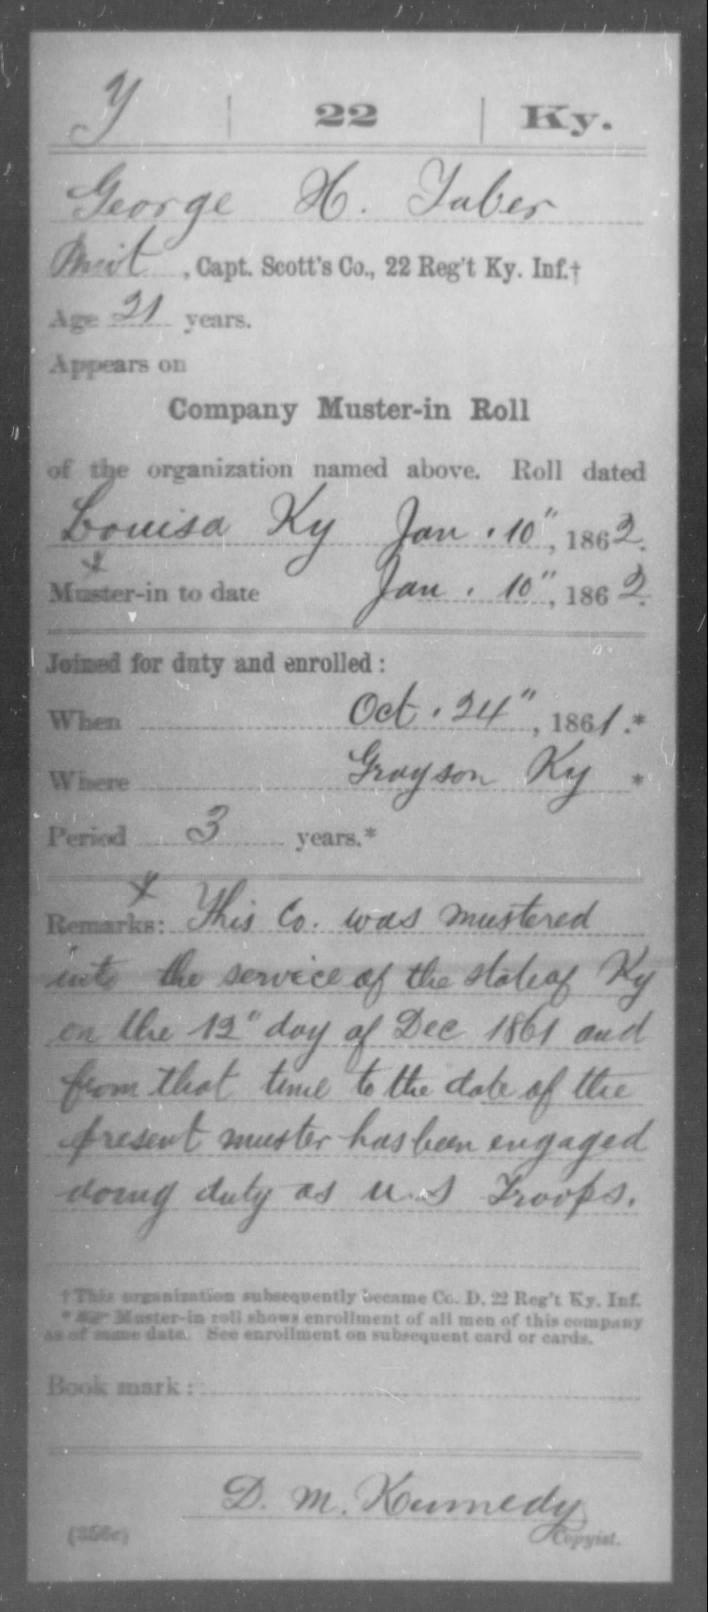 Y | 22 | Ky.
George H. Yaber
Privt, Capt. Scott's Co., 22 Reg't Ky. Inf.†
Age 21 years.
Appears on
Company Muster-in Roll
of the organization named above. Roll dated
Louisa Ky Jan. 10", 1862.
Muster-in to date Jan. 10", 1862.
Joined for duty and enrolled:
When Oct. 24", 1861.*
Where Grayson Ky *
Period 3 years.*
Remarks: This Co. was mustered
into the service of the state of Ky
on the 12" day of Dec 1861 and
from that time to the date of the
present muster has been engaged
doing duty as U.S Troops.
† This organization subsequently became Co. D, 22 Reg't Ky. Inf.
* Muster-in roll shows enrollment of all men of this company
as of same date. See enrollment on subsequent card or cards.
Book mark:
D. M. Kennedy
(356c) Copyist.